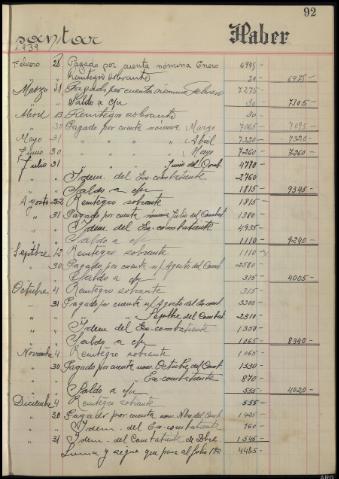 92
Haber
1939
Febrero 28 Pagado por cuenta nómina Enero 6905-
" " Reintegro sobrante 20- 6925-
Marzo 31 Pagado por cuenta nómina Febrero 7275-
" " Saldo a c/n 30- 7305-
Abril 13 Reintegro sobrante 30-
" 30 Pagado por cuenta nómina Marzo 7065- 7095-
Mayo 31 " " " Abril 7320- 7320-
Junio 30 " " " Mayo 7260- 7260-
Julio 31 " " " Junio del Comb. 4770-
" " Idem del Ex-combatiente 2760
" " Saldo a c/n 1815- 9345-
Agosto 22 Reintegro sobrante 1815-
" 31 Pagado por cuenta nómina Julio del Combat 1380-
" " Idem del Ex-combatiente 4935-
" " Saldo a c/n 1110- 9240-
Septbre 12 Reintegro sobrante 1110-
" 30 Pagado por cuenta n/ Agosto del Comb. 2580-
" " Saldo a c/n 315- 4005-
Octubre 4 Reintegro sobrante 315-
" 31 Pagado por cuenta n/ Agosto del Ex-comb 3300-
" " " " Septbre del Combat 2310-
" " Idem del Ex-combatiente 1350-
" " Saldo a c/n 1065- 8340-
Noviembre 4 Reintegro sobrante 1065-
" 30 Pagado por cuenta nom. Octubre del Comb. 1530-
" " " Ex-combatiente 870-
" " Saldo a c/n 555- 4020-
Diciembre 4 Reintegro sobrante 555-
" 28 Pagado por cuenta nom. Nbre del Comb.
" " Idem. del Ex-combatiente 960
" 31 Idem. del Combatiente de Dbre 1545-
Suma y sigue que pasa al folio 4485-